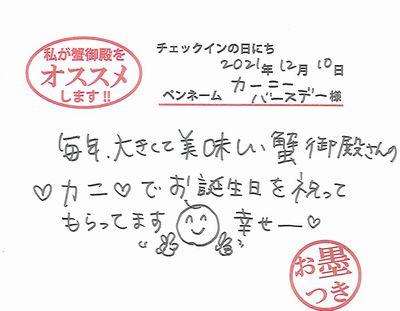 私が蟹御殿を
オススメ
します!!
チェックインの日にち
2021年12月10日
ペンネーム カーニーバースデー様
毎年、大きくて美味しい蟹御殿さんの
♡カニ♡でお誕生日を祝って
もらってます 幸せー♡
お墨
つき